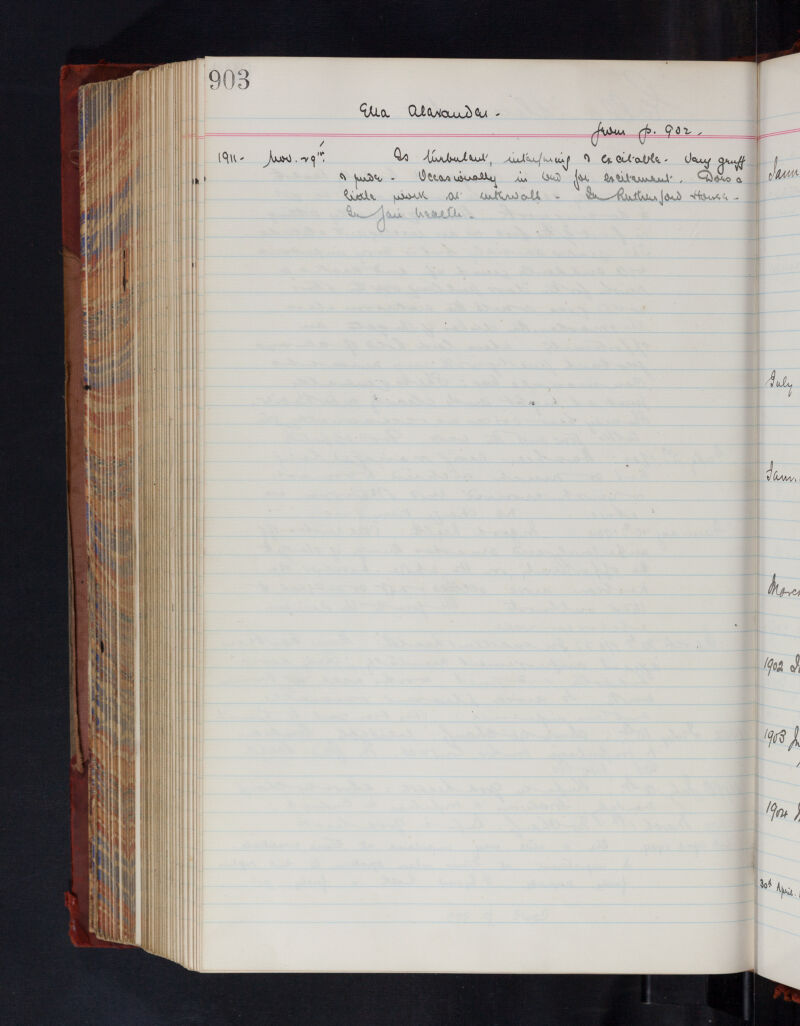 903
Ella Alexander.
from p. 902.
1911. Nov. 29th. Is turbulent, interfering & excitable. Very gruff
& rude. Occasionally in bed for excitement. Does a
little work at intervals. In Rutherford House.
In fair health.
July
March
1902
1903
1904
30th April.